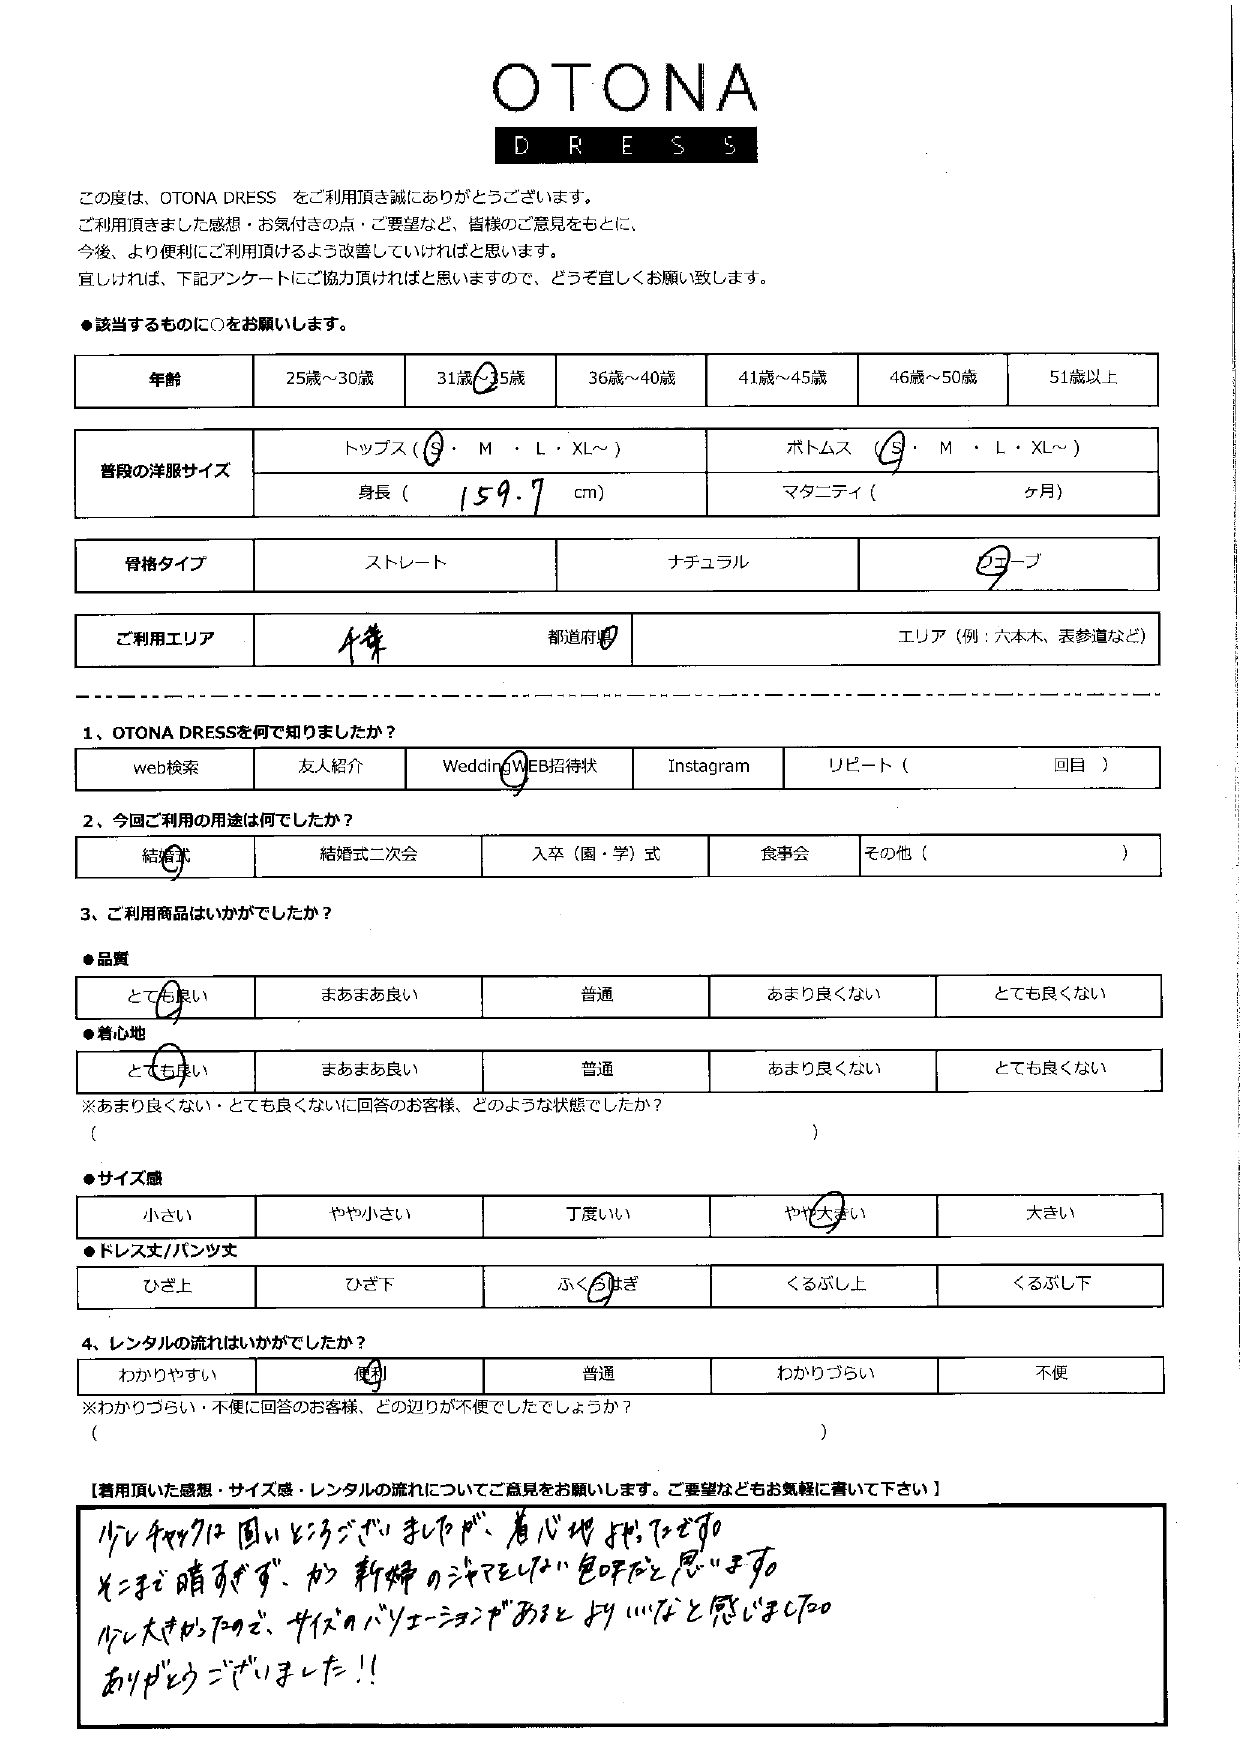 OTONA
DRESS
この度は、OTONA DRESS　をご利用頂き誠にありがとうございます。
ご利用頂きました感想・お気付きの点・ご要望など、皆様のご意見をもとに、
今後、より便利にご利用頂けるよう改善していければと思います。
宜しければ、下記アンケートにご協力頂ければと思いますので、どうぞ宜しくお願い致します。
●該当するものに○をお願いします。
年齢 25歳～30歳 31歳～35歳 36歳～40歳 41歳～45歳 46歳～50歳 51歳以上
普段の洋服サイズ トップス ( S ・ M ・ L ・ XL～ ) ボトムス ( S ・ M ・ L ・ XL～ )
身長 ( 159.7 cm) マタニティ ( ヶ月)
骨格タイプ ストレート ナチュラル ウェーブ
ご利用エリア 千葉 都道府県 エリア（例：六本木、表参道など）
1、OTONA DRESSを何で知りましたか？
web検索 友人紹介 WeddingWEB招待状 Instagram リピート ( 回目 )
2、今回ご利用の用途は何でしたか？
結婚式 結婚式二次会 入卒（園・学）式 食事会 その他 ( )
3、ご利用商品はいかがでしたか？
●品質
とても良い まあまあ良い 普通 あまり良くない とても良くない
●着心地
とても良い まあまあ良い 普通 あまり良くない とても良くない
※あまり良くない・とても良くないに回答のお客様、どのような状態でしたか？
( )
●サイズ感
小さい やや小さい 丁度いい やや大きい 大きい
●ドレス丈/パンツ丈
ひざ上 ひざ下 ふくらはぎ くるぶし上 くるぶし下
4、レンタルの流れはいかがでしたか？
わかりやすい 便利 普通 わかりづらい 不便
※わかりづらい・不便に回答のお客様、どの辺りが不便でしたでしょうか？
( )
【着用頂いた感想・サイズ感・レンタルの流れについてご意見をお願いします。ご要望などもお気軽に書いて下さい】
少しチャックは固いところございましたが、着心地よかったです。
そこまで暗すぎず、かつ新婦のジャマをしない色味だと思います。
少し大きかったので、サイズのバリエーションがあるとよりいいなと感じました。
ありがとうございました!!